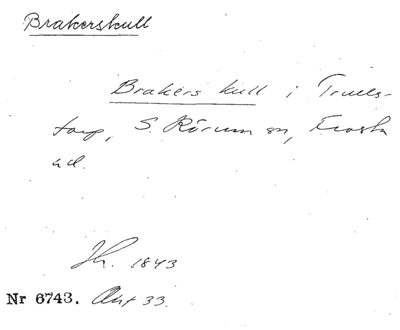 Brakerskull
Brakers kull i Truels-
torp, S. Rörum sn, Frosta
hd.
Jh. 1843
Nr 6743. Akt 33.